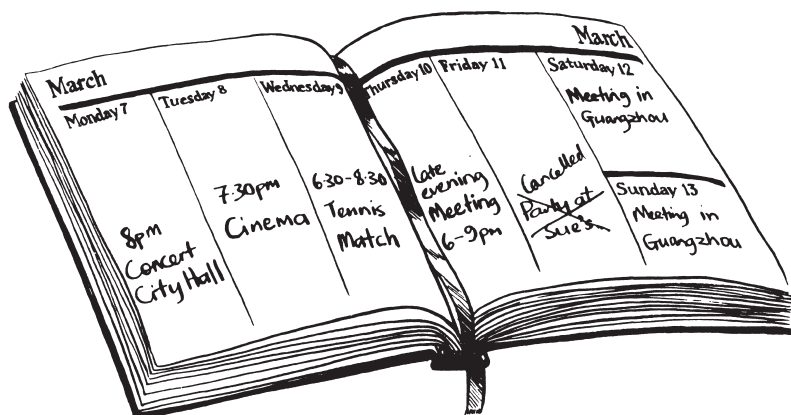 March
Monday 7
8pm
Concert
City Hall
Tuesday 8
7.30pm
Cinema
Wednesday 9
6.30-8.30
Tennis
Match
March
Thursday 10
Late
evening
Meeting
6-9pm
Friday 11
Cancelled
Party at
Sue's
Saturday 12
Meeting in
Guangzhou
Sunday 13
Meeting in
Guangzhou